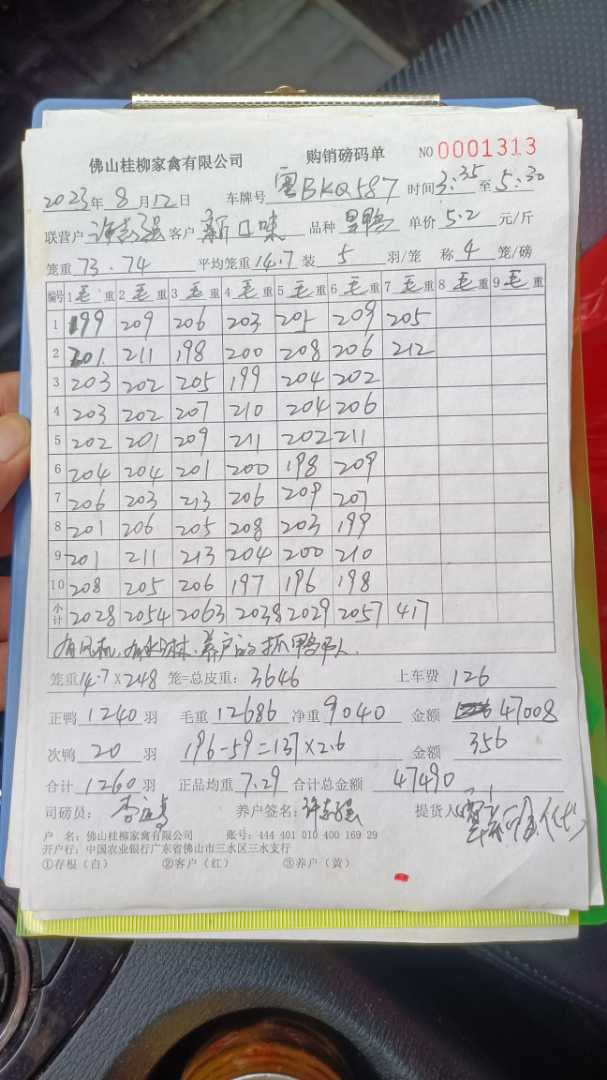 佛山桂柳家禽有限公司 购销磅码单 NO 0001313
2023年 8 月 12 日 车牌号 粤BKQ587 时间 3:35 至 5:30
联营户 许志强 客户 新口味 品种 单价 5.2 元/斤
笼重 73.74 平均笼重 14.7 装 5 羽/笼 称 4 笼/磅
编号 1 毛 重 2 毛 重 3 毛 重 4 毛 重 5 毛 重 6 毛 重 7 毛 重 8 毛 重 9 毛 重
1 199 209 206 203 205 209 205
2 201 211 198 200 208 206 212
3 203 202 205 199 204 202
4 203 202 207 210 204 206
5 202 201 209 211 202 211
6 204 204 201 200 198 209
7 206 203 213 206 209 207
8 201 206 205 208 203 199
9 201 211 213 204 200 210
10 208 205 206 197 196 198
小计 2028 2054 2063 2038 2029 2057 417
有风机,有水淋,养户
笼重14.7×248 笼=总皮重: 3646 上车费 126
正鸭 1240 羽 毛重 12686 净重 9040 金额 47008
次鸭 20 羽 196-59=137×2.6 金额 356
合计 1260 羽 正品均重 7.29 合计总金额 47490
司磅员: 养户签名: 许志强 提货人
户 名: 佛山桂柳家禽有限公司 账号: 444 401 010 400 169 29
开户行: 中国农业银行广东省佛山市三水区三水支行
①存根(白) ②客户(红) ③养户(黄)